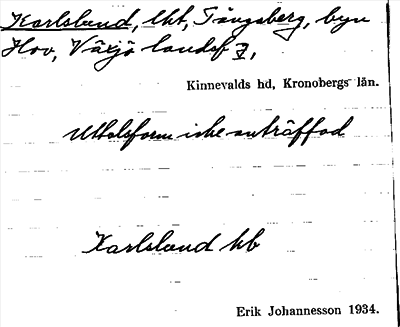 Karlslund, lht, Tångsberg, byn
Hov, Växjö landsf 3,
Kinnevalds hd, Kronobergs län.
Uttalsform icke anträffad
Karlslund kb
Erik Johannesson 1934.